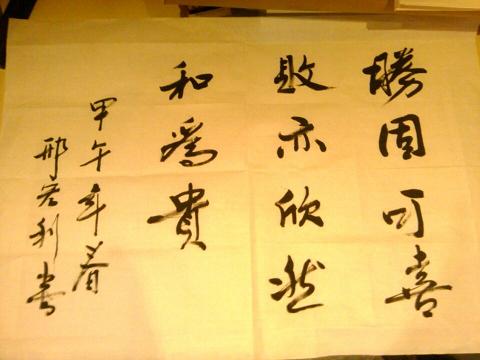 勝固可喜
敗亦欣然
和為貴
甲午年春
邢宏利書